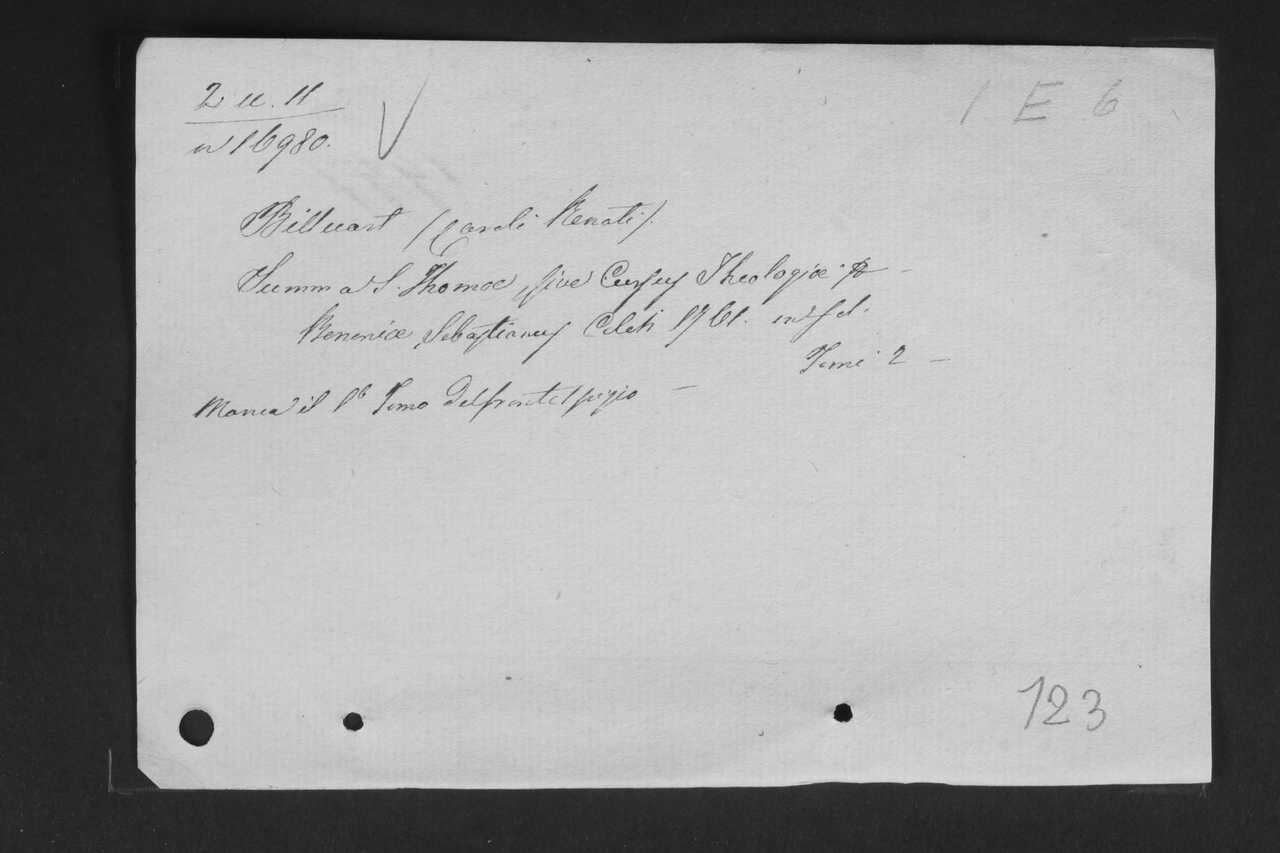 2 u. 11
1 E 6
n 16980.
Billuart (Caroli Renati).
Summa S. Thomae, sive Cursus Theologiae
Venenice Sebastianus Coleti 1761. in fol.
Tomi 2 –
Manca il 1º Tomo del frontespizio –
123